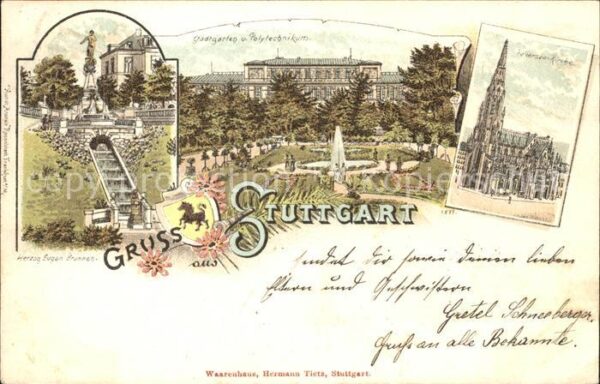 Stadtgarten u. Polytechnikum.
Johanneskirche
Herzog Eugen Brunnen.
1897.
GRUSS
aus
STUTTGART
sendet dir sowie deinen lieben
Eltern und Geschwistern
Gretel Schneeberger.
Gruss an alle Bekannte.
Waarenhaus, Hermann Tietz, Stuttgart.